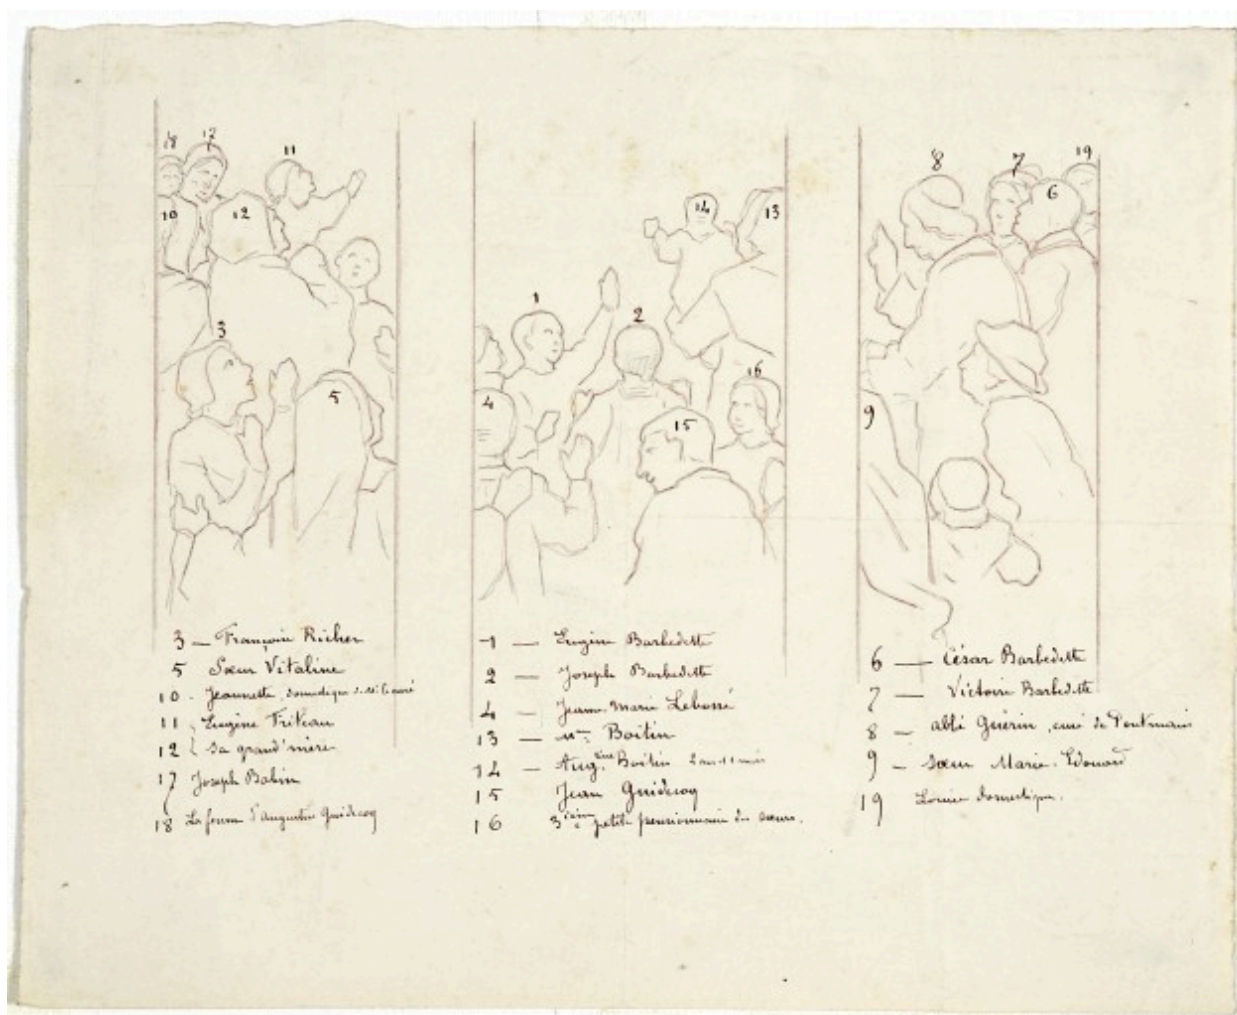 18
17
11
10
12
3
5
1
2
14
13
4
15
16
8
7
19
6
9
3 — Françoise Richer
5 Sœur Vitaline
10 - Jeannette, domestique de Mr le curé
11 Eugène Friteau
12 { sa grand'mère
17 Joseph Babin
18 La femme d'Augustin Guidecoq
1 — Eugène Barbedette
2 — Joseph Barbedette
4 — Jeanne-Marie Lebossé
13 — Boitin
14 — Augne Boitin 2 ans 1
15 Jean Guidecoq
16 3ième petite pensionnaire des sœurs.
6 — César Barbedette
7 — Victoire Barbedette
8 — abbé Guérin, curé de Pontmain
9 — Sœur Marie-Edouard
19 Louise domestique.